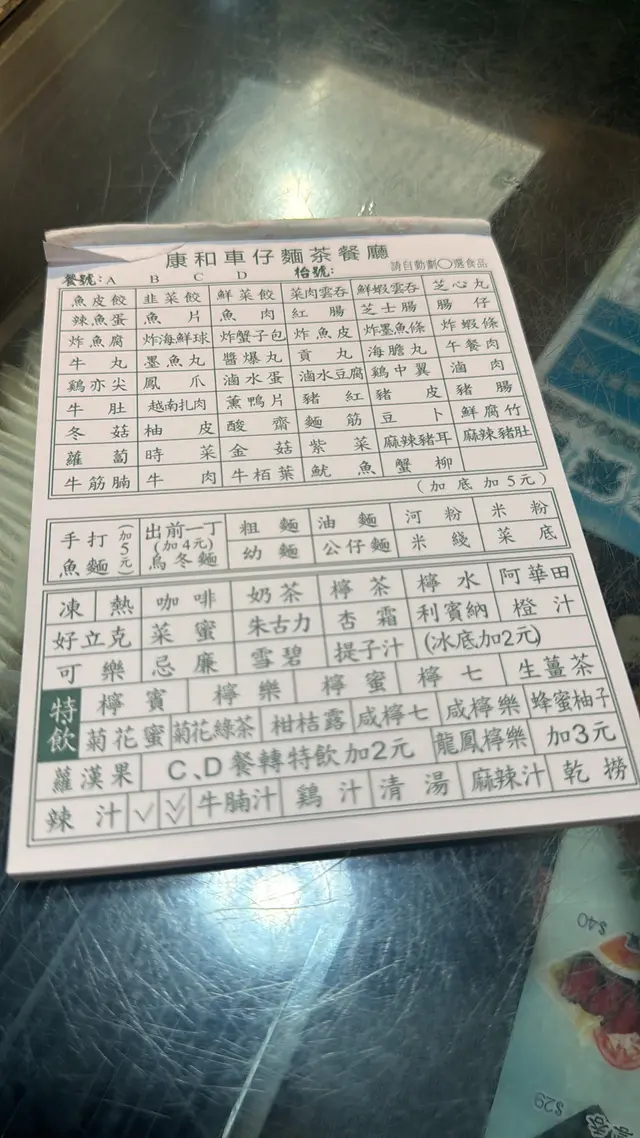 康和車仔麵茶餐廳
餐號: A B C D 枱號: 請自動劃○選食品
魚皮餃 韭菜餃 鮮菜餃 菜肉雲吞 鮮蝦雲吞 芝心丸
辣魚蛋 魚片 魚肉 紅腸 芝士腸 腸仔
炸魚腐 炸海鮮球 炸蟹子包 炸魚皮 炸墨魚條 炸蝦條
牛丸 墨魚丸 醬爆丸 貢丸 海膽丸 午餐肉
鷄亦尖 鳳爪 滷水蛋 滷水豆腐 鷄中翼 滷肉
牛肚 越南扎肉 薰鴨片 豬紅 豬皮 豬腸
冬菇 柚皮 酸齋 麵筋 豆卜 鮮腐竹
蘿蔔 時菜 金菇 紫菜 麻辣豬耳 麻辣豬肚
牛筋腩 牛肉 牛栢葉 魷魚 蟹柳
(加底加5元)
手打魚麵(加5元) 出前一丁(加4元)烏冬麵 粗麵 油麵 河粉 米粉
幼麵 公仔麵 米綫 菜底
凍 熱 咖啡 奶茶 檸茶 檸水 阿華田
好立克 菜蜜 朱古力 杏霜 利賓納 橙汁
可樂 忌廉 雪碧 提子汁 (冰底加2元)
特飲 檸賓 檸樂 檸蜜 檸七 生薑茶
菊花蜜 菊花綠茶 柑桔露 咸檸七 咸檸樂 蜂蜜柚子
蘿漢果 C、D餐轉特飲加2元 龍鳳檸樂 加3元
辣汁 ✓ ✓✓ 牛腩汁 鷄汁 清湯 麻辣汁 乾撈
$40
$29